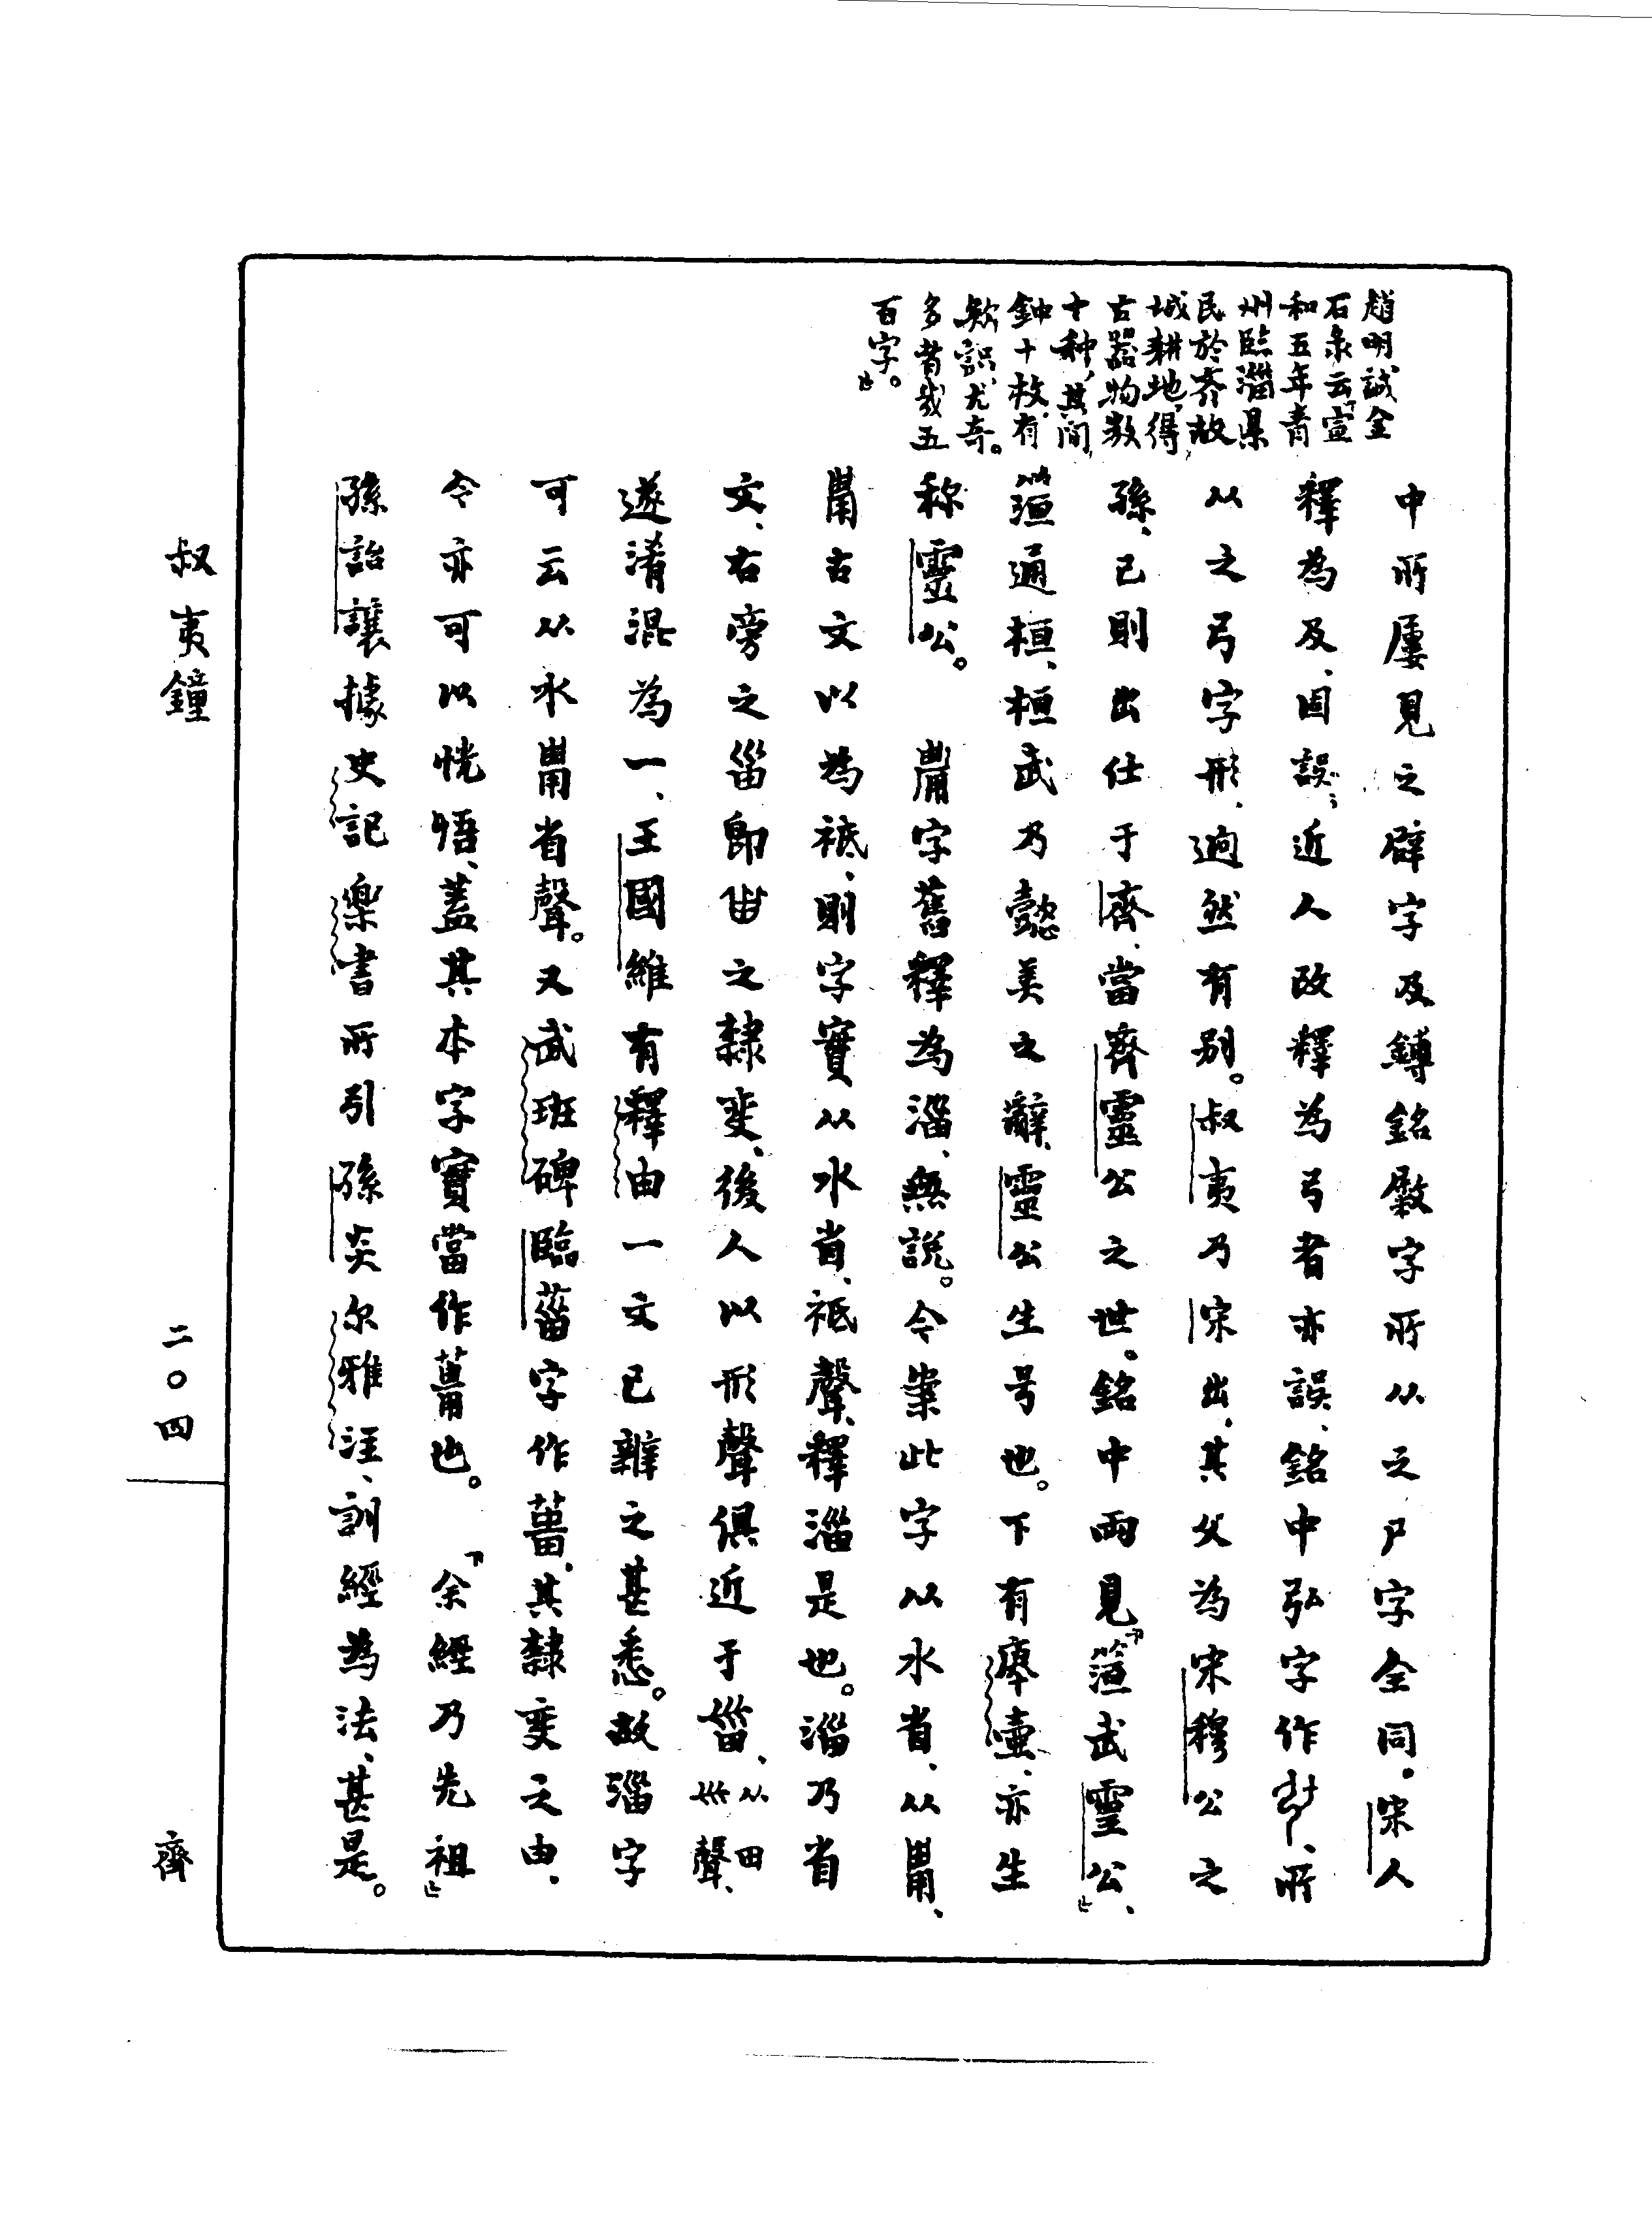 趙明誠金
石彔云「宣
和五年青
州臨淄県
民於齊故
城耕地,得
古器物数
十种,其间
鈡十枚,有
欵識,尤奇。
多者幾五
百字。」
中所屢見之辟字及鎛銘𣪘字所从之尸字全同。宋人
釋為及,固誤;近人改釋為弓者亦誤,銘中弘字作,所
从之弓字形,迥然有别。叔夷乃宋出,其父為宋穆公之
孫,已則出仕于齊,當齊靈公之世。銘中兩見「𥭘武靈公」,
𥭘通桓,桓武乃懿美之辭,靈公生号也。下有庫壷,亦生
称靈公。 字舊釋為淄,無說。今案此字从水省,从,
古文以為祗,則字實从水省,祗聲,釋淄是也。淄乃省
文,右旁之甾即甾之隸变,後人以形聲俱近于甾,从田巛聲,
遂淆混為一,王國維有釋由一文已辦之甚悉。故淄字
可云从水省聲。又武班碑臨菑字作,其隸变之由,
今亦可以恍悟,蓋其本字實當作也。「余經乃先祖」
孫詒讓據史記樂書所引孫炎尔雅注,訓經為法,甚是。
叔夷鐘
二〇四
齊